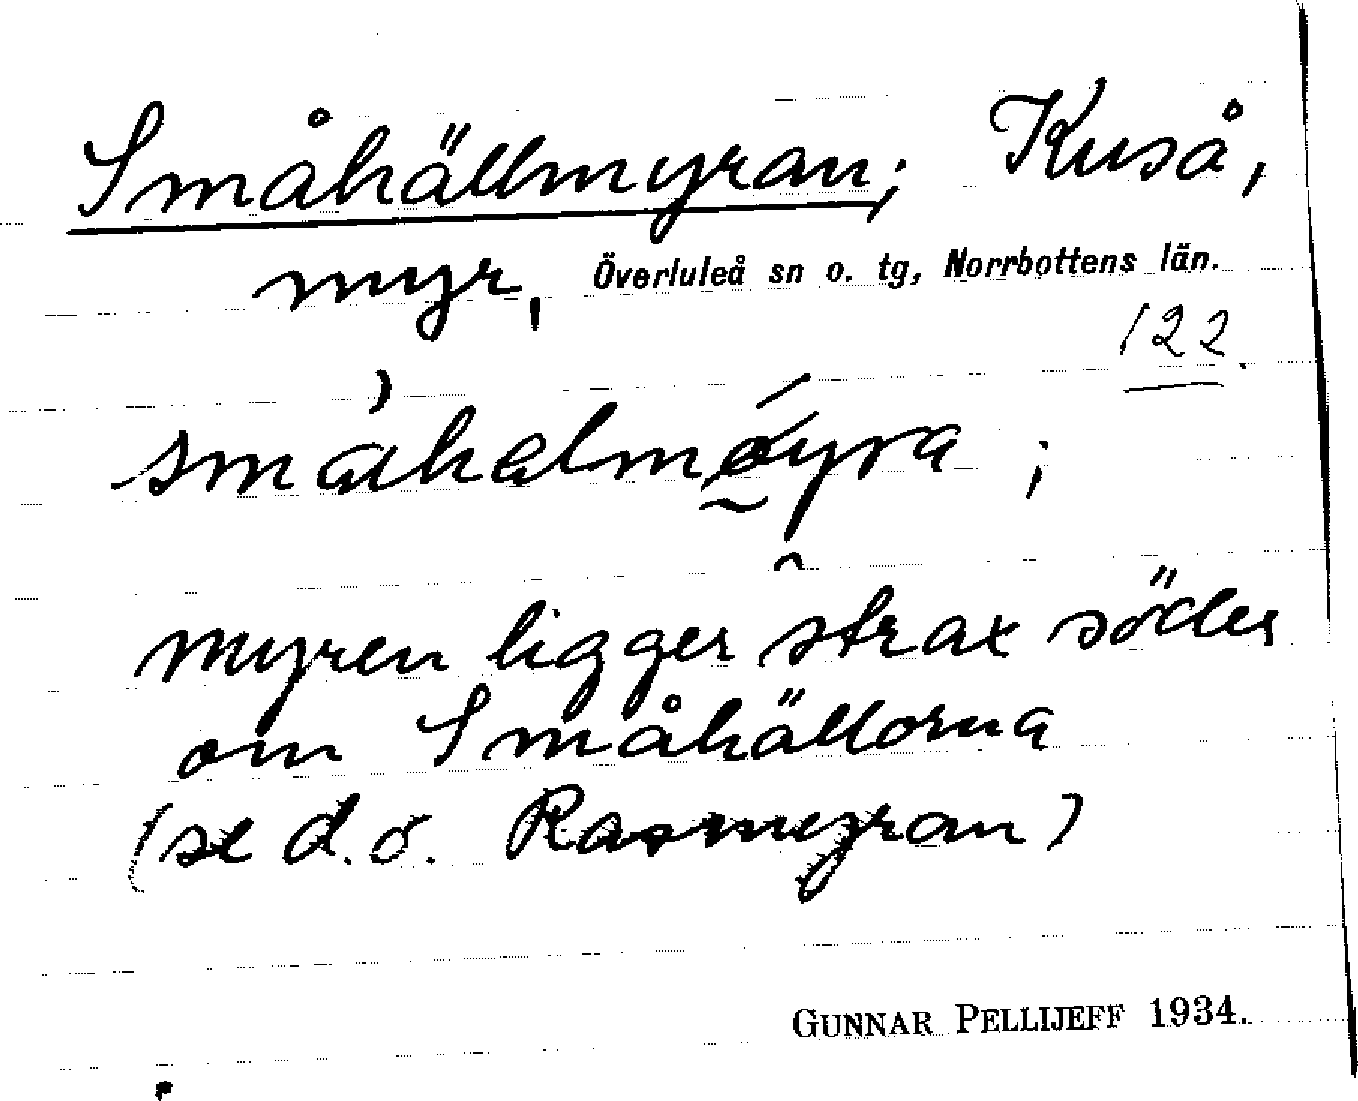 Småhällmyran; Kuså,
myr, Överluleå sn o. tg, Norrbottens län.
122.
småhalmøyra;
myren ligger strax söder
om Småhällorna
(se d.o. Rasmyran)
GUNNAR PELLIJEFF 1934.